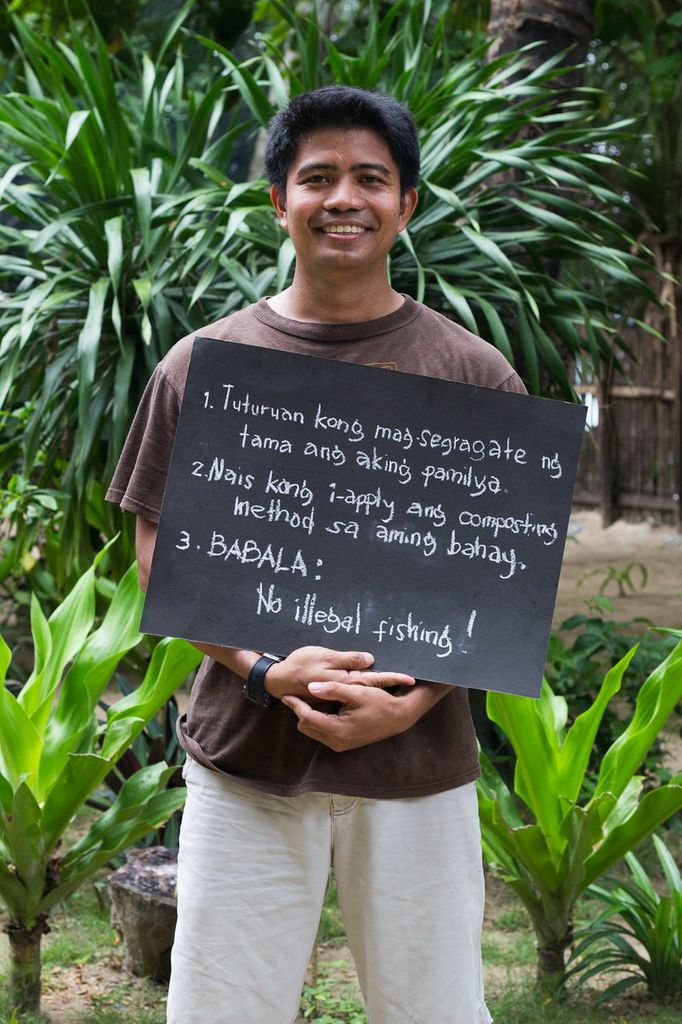 1. Tuturuan kong mag-segragate ng
tama ang aking pamilya.
2. Nais kong i-apply ang composting
method sa aming bahay.
3. BABALA:
No illegal fishing!